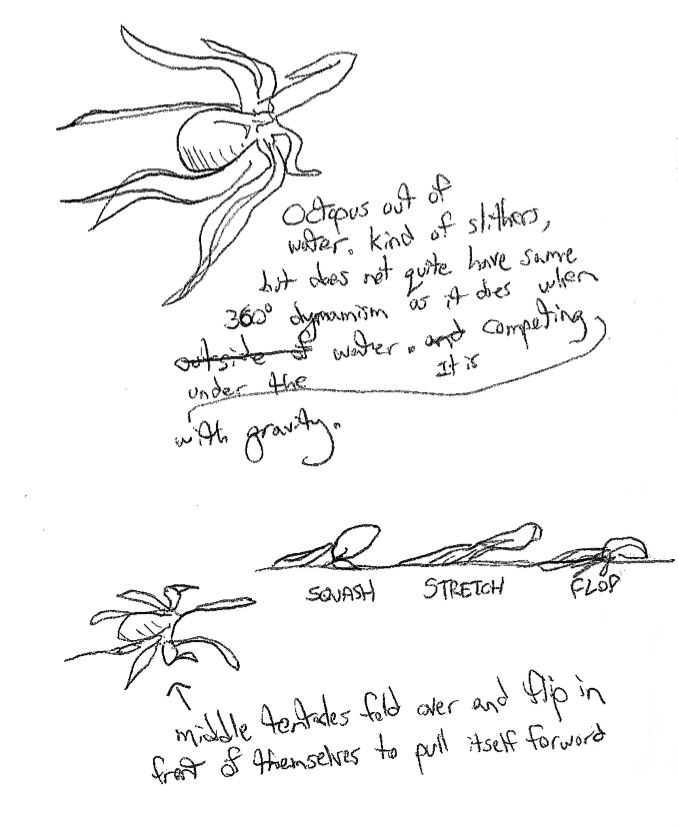 Octopus out of
water. kind of slithers,
but does not quite have same
360° dynamism as it does when
outside of water. and competing
under the It is
with gravity.
SQUASH STRETCH FLOP
middle tentacles fold over and flip in
front of themselves to pull itself forward